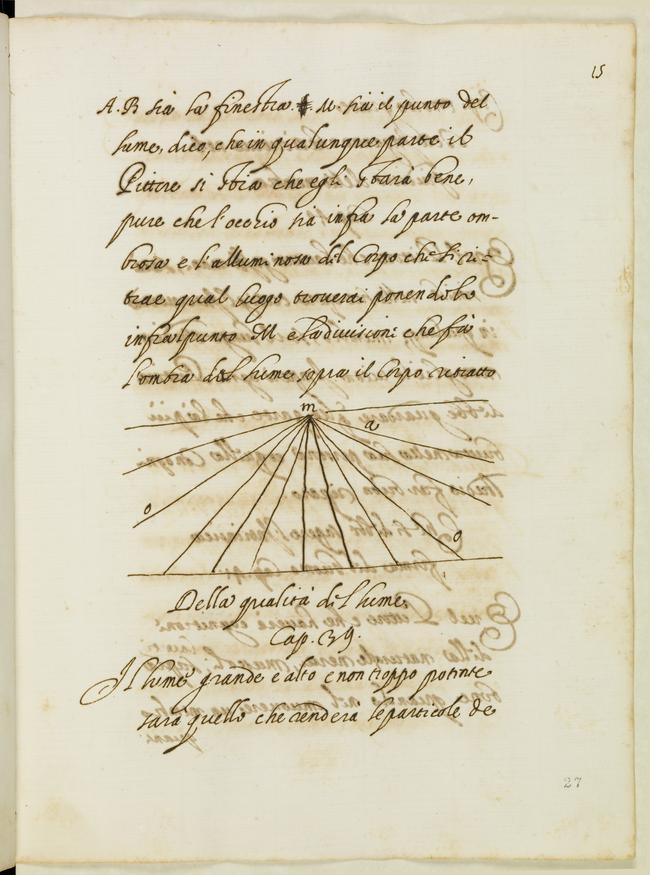 15
A.B sia la finestra. M. sia il punto del
lume, dico, che in qualunque parte il
Pittore si stia che egli stara bene,
pure che l'occhio sia infra la parte om-
brosa e l'alluminosa del Corpo che si ri-
trae qual luogo troverai ponendoti
infra'l punto M e la divisione che fa
l'ombra del lume sopra il Corpo ritratto
m
a
o
o
Della qualità del lume.
Cap. 39.
Il lume grande e alto e non troppo potente
sarà quello che rendera le particole de
27